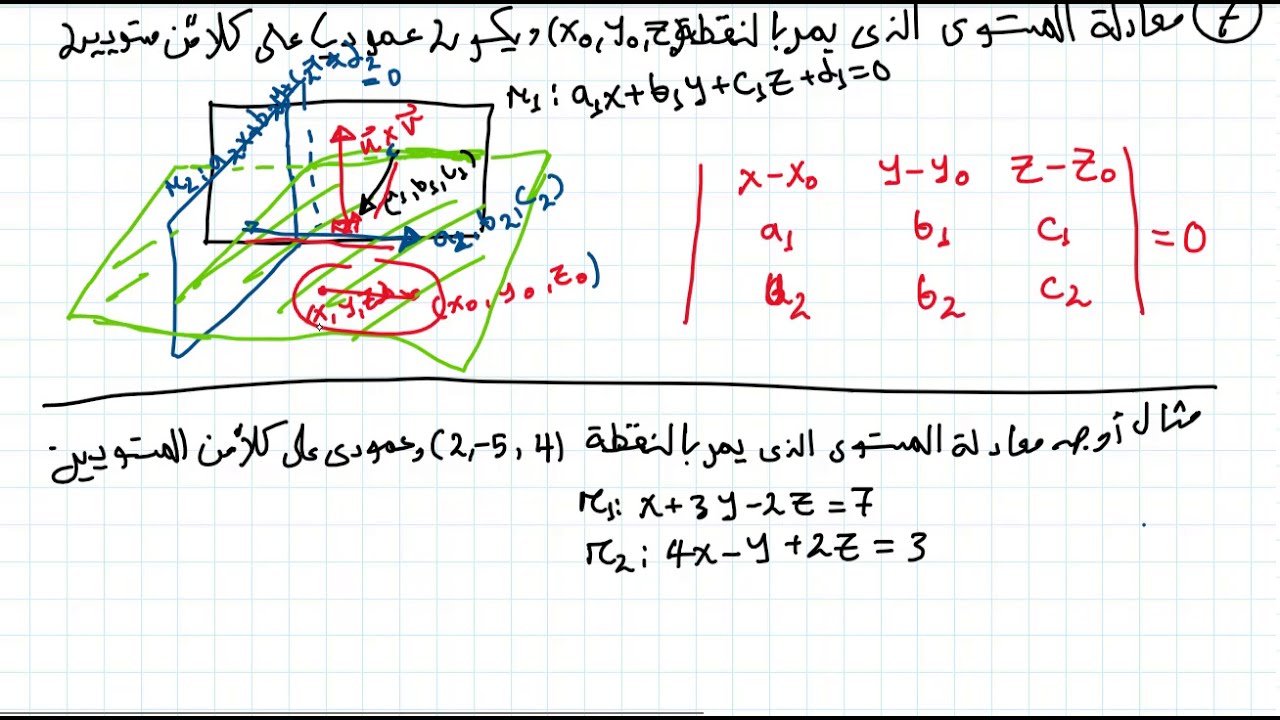 7 معادلة المستوى الذى يمر بالنقطة (x₀, y₀, z₀) ويكون عموديا على كلا من مستويين
π₁: a₁x + b₁y + c₁z + d₁ = 0
= 0
u⃗ × v⃗
(a₂, b₂, c₂)
(x, y, z)
(x₀, y₀, z₀)
| x-x₀ y-y₀ z-z₀ |
| a₁ b₁ c₁ | = 0
| a₂ b₂ c₂ |
مثال أوجد معادلة المستوى الذى يمر بالنقطة (2, -5, 4) وعمودى على كلا من المستويين
π₁: x + 3y - 2z = 7
π₂: 4x - y + 2z = 3